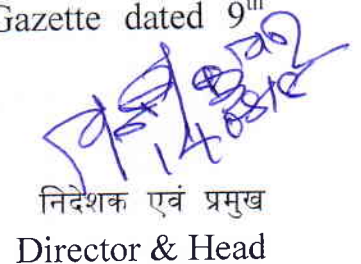 Gazette dated 9th
निदेशक एवं प्रमुख
Director & Head